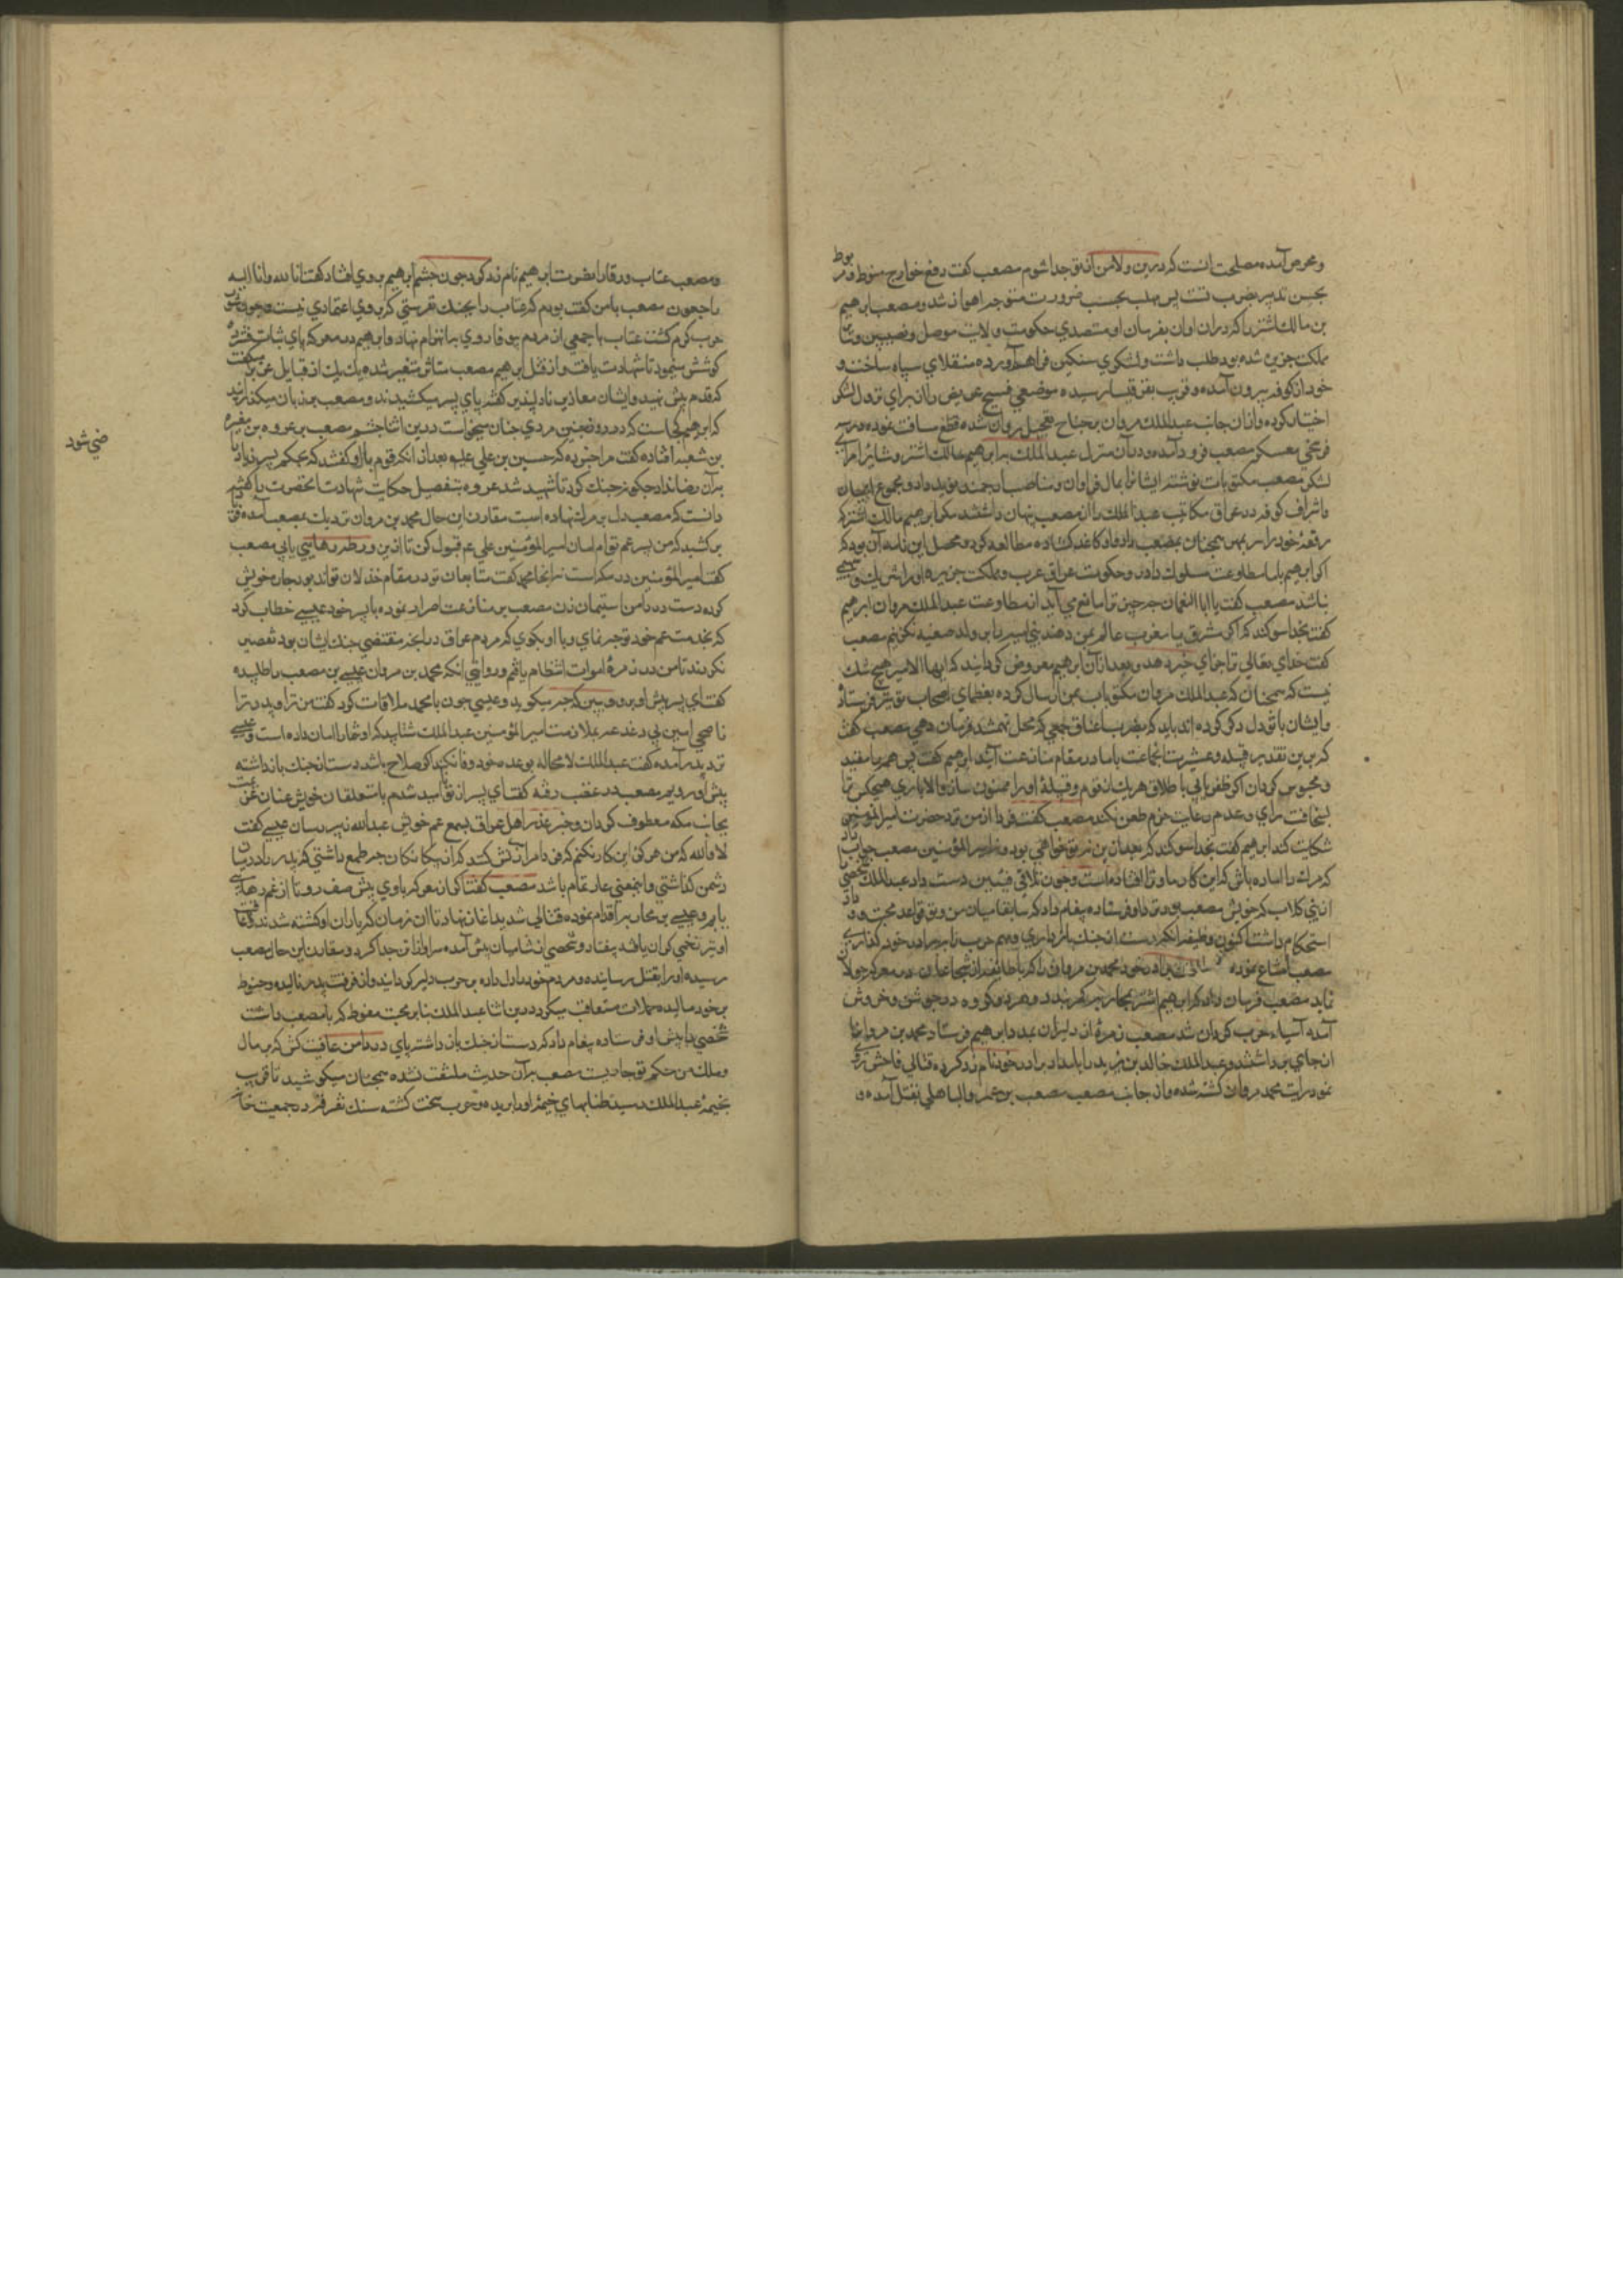 و محرص آمده مصلحت آنست که درین ولا من از تو جدا شوم مصعب گفت دفع خوارج منوط و مربوط
بحسن تدبیر و ضرب تست پس مهلب بحسب ضرورت متوجه اهواز شد و مصعب ابرهیم
بن مالک اشتر را که در ان اوان بفرمان او متصدی حکومت ولایت موصل و نصیبین و تمام
مملکت جزیره شده بود طلب داشت و لشکری سنکین فراهم آورده منقلای سپاه ساخت و
خود از کوفه بیرون آمده و قریب بقرقیسا رسیده موضعی فسیح عریض را از برای نزول لشکر
اختیار کرده و از ان جانب عبدالملک مروان بجناح تعجیل روان شده قطع مسافت نموده در سه
فرسخی معسکر مصعب فرود آمده و در آن منزل عبدالملک بابرهیم مالک اشتر و سایر امرای
لشکر مصعب مکتوبات نوشته ایشانرا بمال فراوان و مناصب ارجمند نوید داد و مجموع اعیان
و اشراف کوفه و عراق مکاتیب عبدالملک را از مصعب پنهان داشتند مکر ابرهیم مالک اشتر که
رقعهٔ خود را سر بمهر همچنان بمصعب داد و او کاغذ کشاده مطالعه کرد و محصل این نامه آن بود که
اکر ابرهیم با ما مطاوعت مسلوک دارد حکومت عراق عرب و مملکت جزیره او را شریک و سهیمی
نباشد مصعب گفت یا ابا النعمان چه چیز ترا مانع می آید از مطاوعت عبدالملک مروان ابرهیم
گفت بخدا سوکند که اکر مشرق یا مغرب عالم بمن دهند بنی امیه را بر ولد صفیه نکزینم مصعب
گفت خدای تعالی ترا جزای خیر دهد و بعد از آن ابرهیم معروض کردانید که ایها الامیر هیچ شک
نیست که همچنان که عبدالملک مروان مکتوبات بمن ارسال کرده بعظمای اصحاب تو نیز فرستاده
و ایشان با تو دل دکر کرده اند باید که بضرب اعناق جمعی که محل تهمتند فرمان دهی مصعب گفت
که برین تقدیر قبیله و عشیرت انجماعت با ما در مقام منازعت آیند ابرهیم گفت پس همه را مقید
و محبوس کردان اکر ظفر یابی باطلاق هر یک از قوم و قبیلهٔ او را ممنون ساز و الا باری هیچکس ترا
بسخافت رای و عدم رعایت حزم طعن نکند مصعب گفت فردا از من نزد حضرت امیر المؤمنین
شکایت کند ابرهیم گفت بخدا سوکند که بعد از این نه تو خواهی بود و نه امیر المؤمنین مصعب جواب داد
که مرک را اماده باش که این کار ما و ترا افتاده است و چون تلاقی فئتین دست داد عبدالملک شخصی
از بنی کلاب که خویش مصعب بود نزد او فرستاده پیغام داد که سابقا میان من و تو قواعد محبت و وداد
استحکام داشت اکنون وظیفه انکه دست از جنک بازداری و مهم حرب را ببرادر خود کذاری
مصعب امتناع نموده برادر خود محمد بن مروان را که با طایفه از شجاعان در معرکه جولان
نماید مصعب فرمان داد که ابرهیم اشتر بمحاربه کمر بندد و هر دو کروه در جوشن و خروش
آمده آسیاء حرب کردان شد مصعب زمرهٔ از دلیران بمدد ابرهیم فرستاد محمد بن مروانرا
از جای برداشتند و عبدالملک خالد بن یزید را بامداد برادر خود نامزد کرده قتالی فاحش روی
نمود رایت محمد مروان کشته شده و از جانب مصعب مصعب بن عمر والباهلی بقتل آمده و
و مصعب عتاب ورقا را بنصرت ابرهیم نامزد کرد چون چشم ابرهیم بر وی افتاد گفت انا لله و انا الیه
راجعون مصعب با من گفت بودم که عتاب را بجنک نفرستی که بر وی اعتمادی نیست و چون تنور
حرب کرم کشت عتاب با جمعی از مردم بوفا روی بانهزام نهاد و ابرهیم در معرکه پای ثبات فشرده
کوشش مینمود تا شهادت یافت و از قتل ابرهیم مصعب متاثر متغیر شده یک یک از قبایل عرب میکفت
که قدم پیش نهید و ایشان معاذیر نادلپذیر گفته پای پس میکشیدند و مصعب بر زبان میکذرانید
که ابرهیم کجاست که در روز چنین مردی چنان میخواست درین اثنا چشم مصعب بر عروه بن مغیره
بن شعبه افتاده گفت مرا خبر ده که حسین بن علی علیه بعد از انکه قوم با او کفتند که بحکم پسر زیاد
بر آن رضا نداد چکونه جنک کرد تا شهید شد عروه بتفصیل حکایت شهادت آنحضرت باز گفته
دانست که مصعب دل بر مرک نهاده است مقارن این حال محمد بن مروان نزدیک بمصعب آمده فریاد
بر کشید که من پسر عم توام امان امیر المؤمنین علی عم قبول کن تا از ین ورطه رهایی یابی مصعب
گفت امیر المؤمنین در مکه است نه اینجا محمد گفت متابعان تو در مقام خذلان تواند بر جان خویش
کرده دست در دامن استیمان زن مصعب بر ممانعت اصرار نموده با پسر خود عیسی خطاب کرد
که بخدمت عم خود توجه نمای و با او بکوی که مردم عراق در انچه مقتضی جنک ایشان بود تقصیر
نکردند تا من در زمرهٔ اموات انتظام یافتم و روایتی انکه محمد بن مروان عیسی بن مصعب را طلبیده
گفت ای پسر پیش او برو و ببین که چه میکوید و عیسی چون با محمد ملاقات کرد گفت من ترا و پدر ترا
ناصحی امینم بی دغدغه بملازمت امیر المؤمنین عبدالملک شتابید که او شما را امان داده است و عیسی
نزد پدر آمده گفت عبدالملک لا محاله بوعده خود وفا نکند اکر صلاح باشد دست از جنک باز داشته
پیش او رویم مصعب در عقب رفته گفت ای پسر از تو امید شدم با متعلقان خویش عنان عزیمت
بجانب مکه معطوف کردان و خبر غدر اهل عراق بسمع عم خویش عبدالله زبیر رسان عیسی گفت
لا والله که من هرکز این کار نکنم که فردا مرا نکوهش کنند که از بیکانکان چه طمع داشتی که پدر را در میان
دشمن کذاشتی و اینمعنی عار تمام باشد مصعب گفت اکر از معرکه باوی پیش صف رو تا از غم رهایی
یابم و عیسی بن محاربه اقدام نموده قتالی شدید اغاز نهاد تا ان زمان که یاران او کشته شدند و عاقبت
او نیز زخمی کران یافته بیفتاد و شخصی از شامیان پیش آمده سر او از تن جدا کرد و مقارن این حال مصعب
رسیده او را بقتل رسانیده و مردم خود را دل داده بر حرب دلیر کردانید و از فرقت پدر نالیده و حنوط
بر خود مالیده حملات متعاقب میکرد درین اثنا عبدالملک بنابر محبت مفرط که با مصعب داشت
شخصی را پیش او فرستاده پیغام داد که دست از جنک باز داشته پای در دامن عافیت کش که بر مال
و ملک من حکم تو جاریست مصعب بر آن حدیث ملتفت نشده همچنان میکوشید تا قریب
بخیمهٔ عبدالملک رسید طنابهای خیمهٔ او را بریده و حرب سخت کشته سنک تفرقه در جمعیت خا
ضی شود